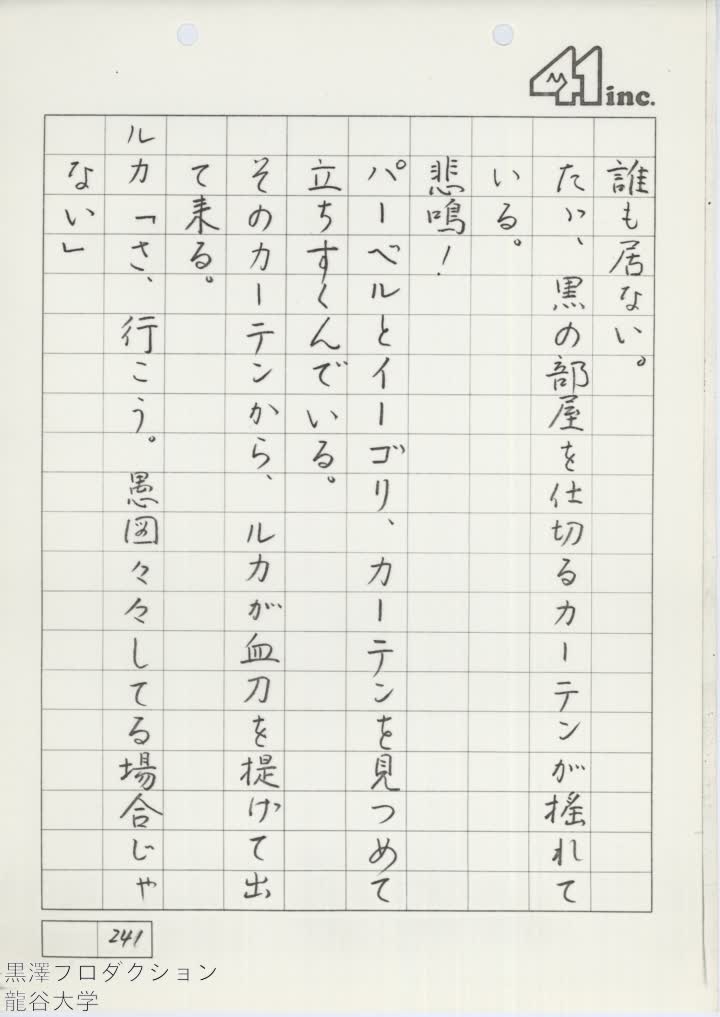 41 inc.
誰も居ない。
たゞ、黒の部屋を仕切るカーテンが揺れて
いる。
悲鳴！
パーベルとイーゴリ、カーテンを見つめて
立ちすくんでいる。
そのカーテンから、ルカが血刀を提げて出
て来る。
ルカ「さ、行こう。愚図々々してる場合じゃ
ない」
241
黒澤フロダクション
龍谷大学